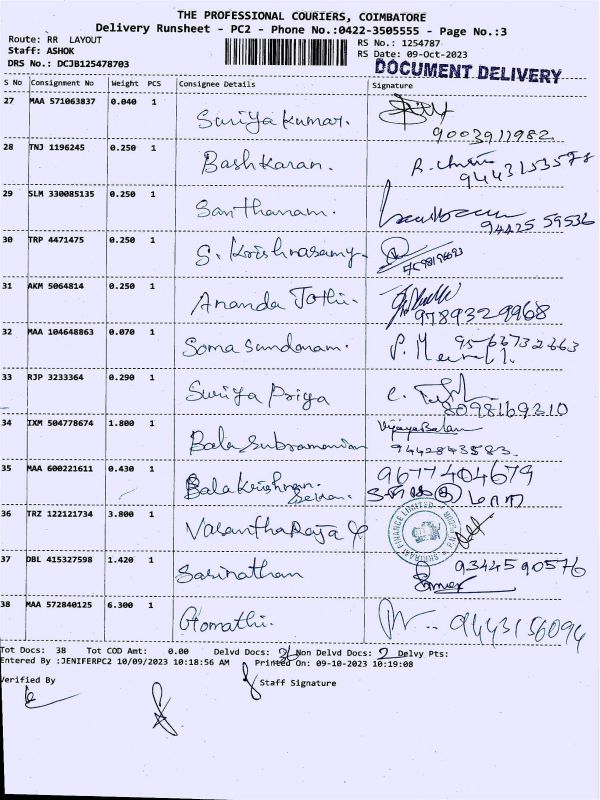 THE PROFESSIONAL COURIERS, COIMBATORE
Delivery Runsheet - PC2 - Phone No.:0422-3505555 - Page No.:3
Route: RR LAYOUT
RS No.: 1254787
Staff: ASHOK
RS Date: 09-Oct-2023
DRS No.: DCJB125478703
DOCUMENT DELIVERY
S No Consignment No Weight PCS Consignee Details Signature
27 MAA 571063837 0.040 1 Suriya Kumar.
9003911982
28 TNJ 1196245 0.250 1 Bashkaran.
9443153578
29 SLM 330085135 0.250 1 Santhanam.
94425 59536
30 TRP 4471475 0.250 1 S. Krishnasamy.
31 AKM 5064814 0.250 1 Ananda Jothi.
9789329968
32 MAA 104648863 0.070 1 Soma Sundanam.
33 RJP 3233364 0.290 1 Suriya Priya
8098169210
34 IXM 504778674 1.800 1 Bala Subramanian VijayaBalan
9442843583.
35 MAA 600221611 0.430 1 Bala Krishnan. 9677404679
36 TRZ 122121734 3.800 1 Vasantha Raja
SHRIRAM FINANCE LIMITED
37 DBL 415327598 1.420 1 Sasinathan 9344590576
38 MAA 572840125 6.300 1 Gomathi. 9443156094
Tot Docs: 38 Tot COD Amt: 0.00 Delvd Docs: 36 Non Delvd Docs: 2 Delvy Pts:
Entered By :JENIFERPC2 10/09/2023 10:18:56 AM Printed On: 09-10-2023 10:19:08
Verified By
Staff Signature